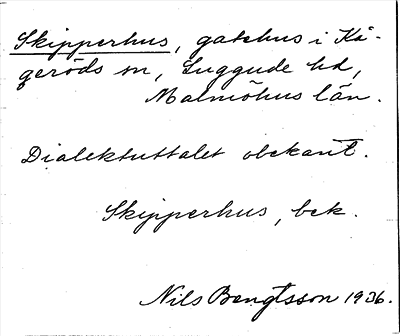 Skipperhus, gatehus i Kå-
geröds sn, Luggude hd,
Malmöhus län.
Dialektuttalet obekant.
Skipperhus, bek.
Nils Bengtsson 1936.